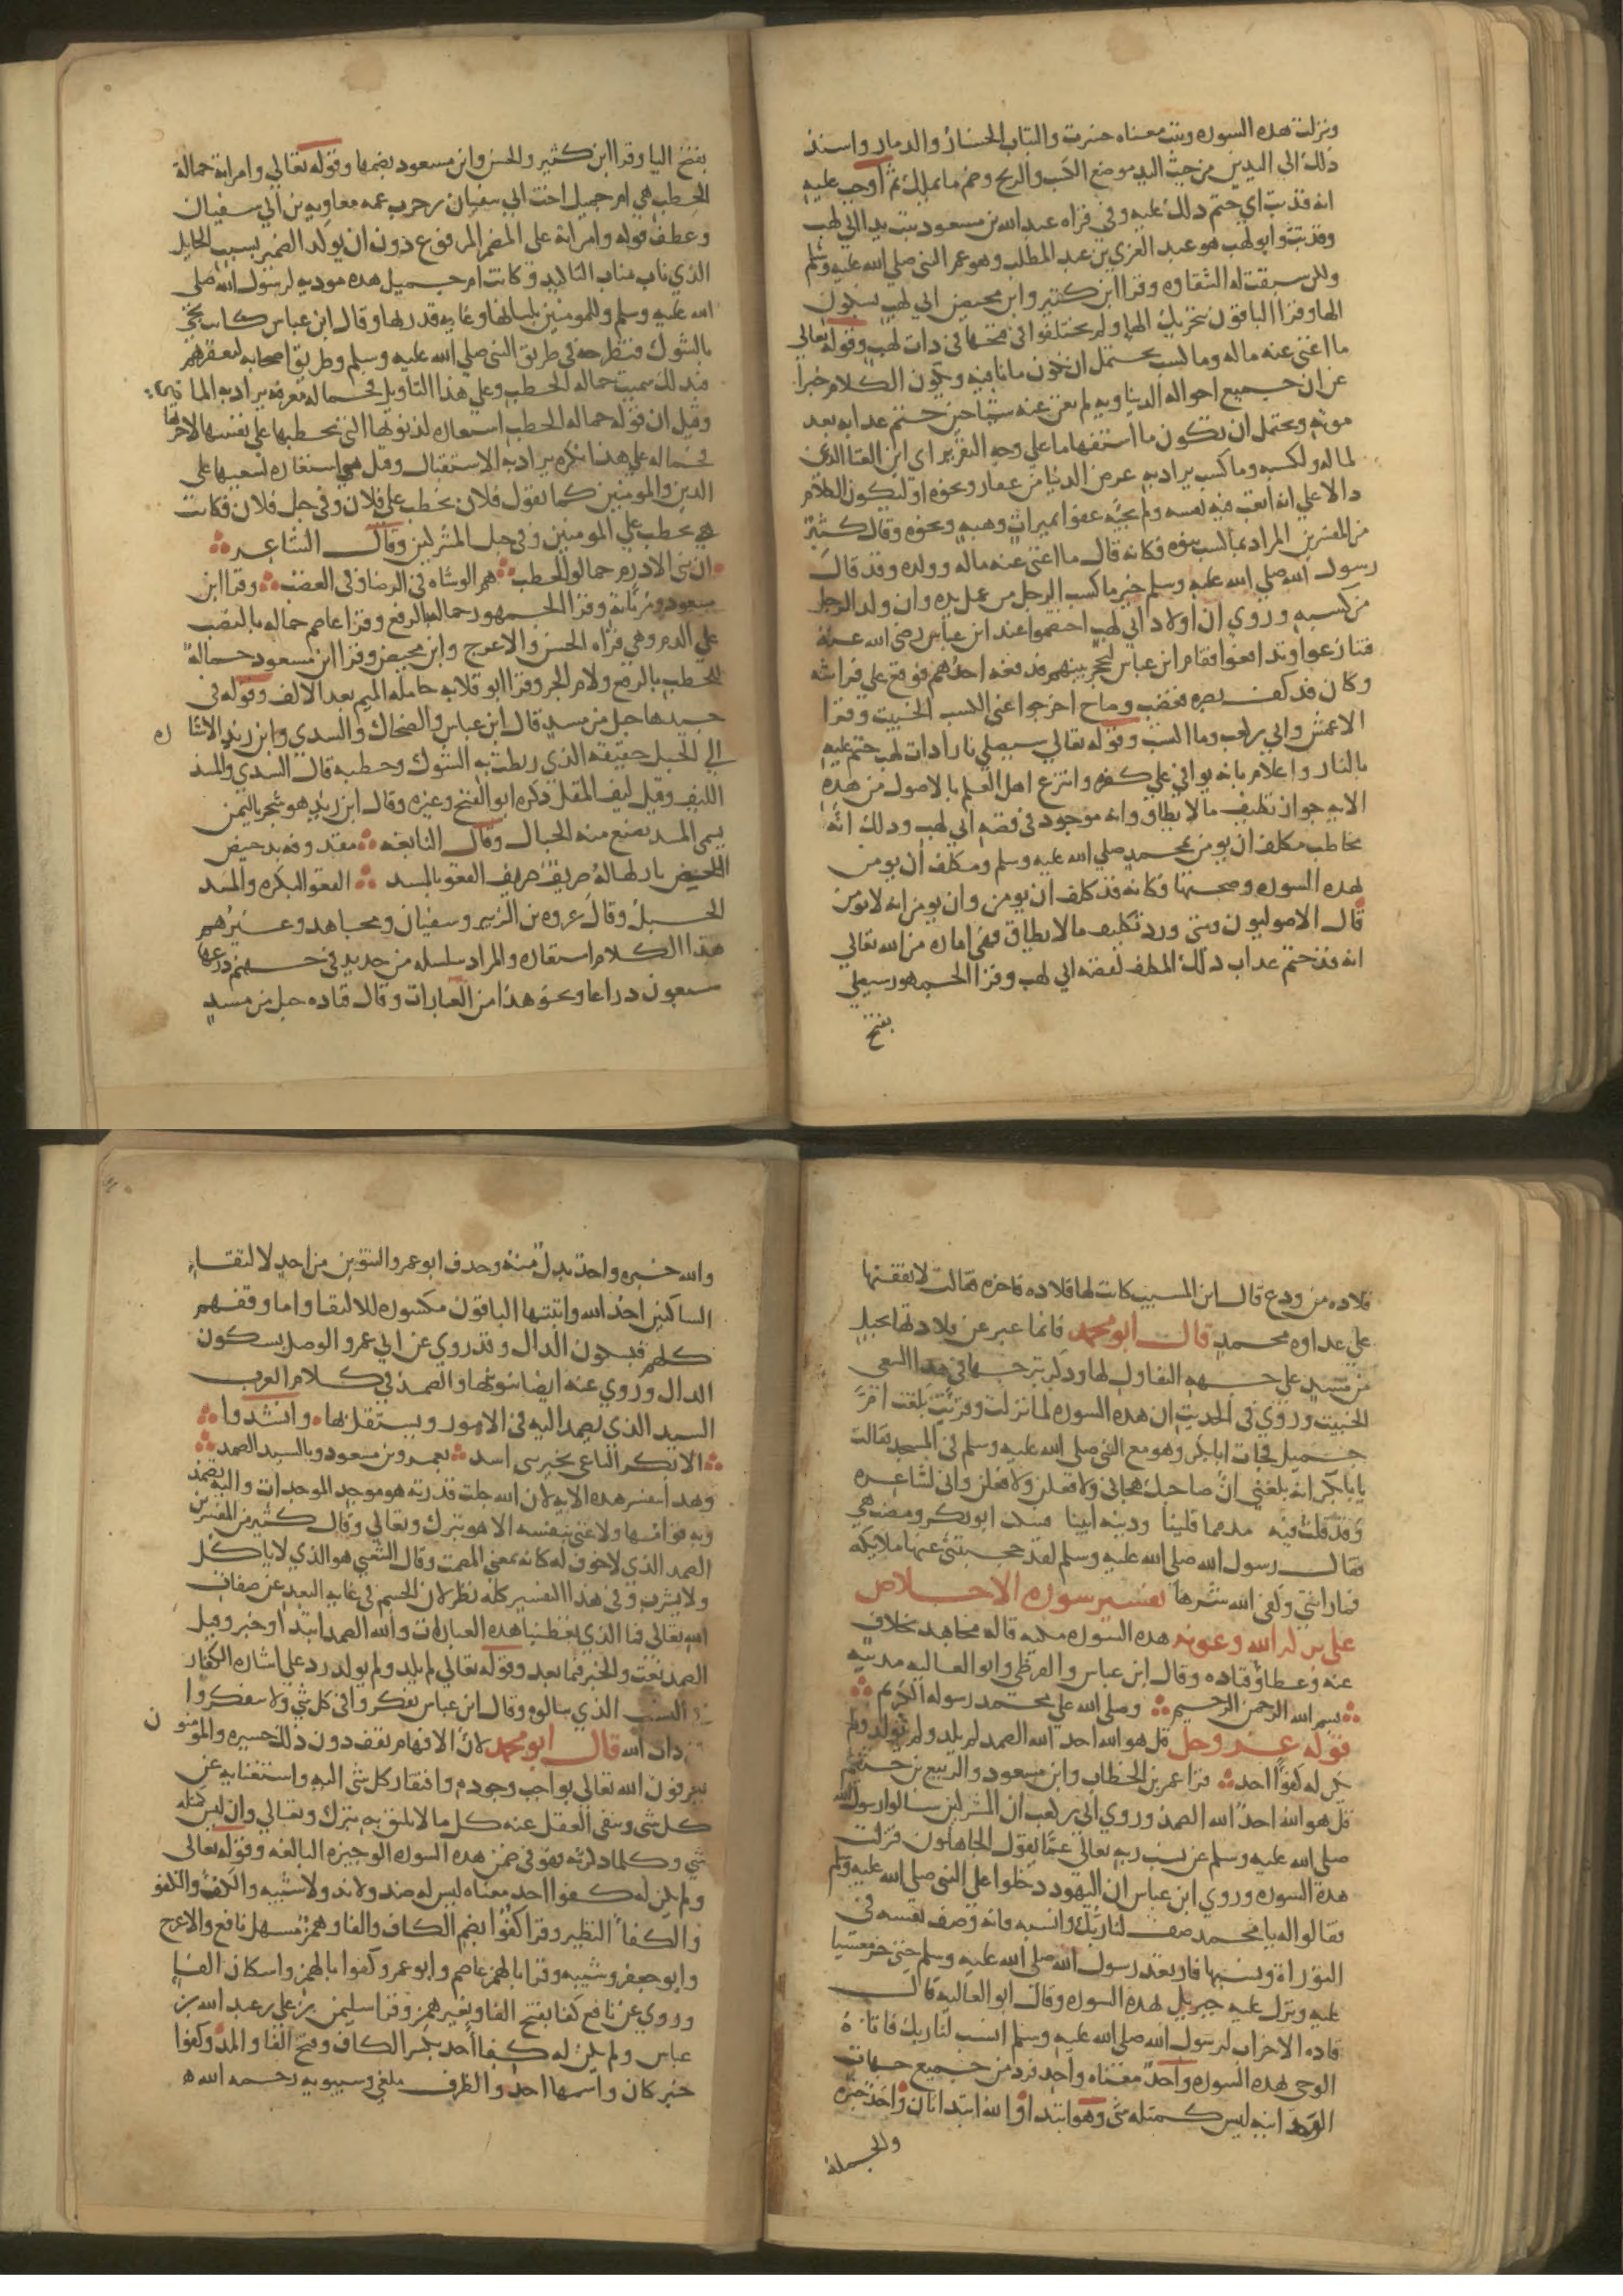 ونزلت هذه السوره وتبت معناه خسرت والتباب الخسار والدمار واسند
ذلك الي اليدين من حيث اليد موضع الكسب والربح وضم ما يملك ثم اوجب عليه
انه قد تب اي حتم ذلك عليه وفي قراه عبد الله بن مسعود تبت يدا ابي لهب
وقد تب وابو لهب هو عبد العزي بن عبد المطلب وهو عم النبي صلي الله عليه وسلم
ولكن سبقت له الشقاوه وقرا ابن كثير وابن محيصن ابي لهب بسكون
الها وقرا الباقون بتحريك الها ولم يختلفوا في فتحها في ذات لهب وقوله تعالي
ما اغني عنه ماله وما كسب يحتمل ان تكون ما نافيه ويكون الكلام خبرا
عن ان جميع احواله الدنياويه لم تغن عنه شيا حين حتم عذابه بعد
موته ويحتمل ان تكون ما استفهاما علي وجه التقرير اي اين الغنا الذي
لماله ولكسبه وما كسب يراد به عرض الدنيا من عقار ونحوه او ليكون الكلام
دالا علي انه اتعب فيه نفسه ولم يجيه عفوا بميراث وهبه ونحوه وقال كثير
من المفسرين المراد بما كسب بنوه فكانه قال ما اغني عنه ماله وولده وقد قال
رسول الله صلي الله عليه وسلم خير ما كسب الرجل من عمل يده وان ولد الرجل
من كسبه وروي ان اولاد ابي لهب اختصموا عند ابن عباس رضي الله عنه
فتنازعوا وتدافعوا فقام ابن عباس ليحجز بينهم فدفعه احدهم فوقع علي فراشه
وكان قد كف بصره فغضب وصاح اخرجوا عني الكسب الخبيث وقرا
الاعمش وابي بن كعب وما اكتسب وقوله تعالي سيصلي نارا ذات لهب حتم عليه
بالنار واعلام بانه يوافي علي كفره وانتزع اهل العلم بالاصول من هذه
الايه جواز تكليف ما لا يطاق وانه موجود في قصه ابي لهب وذلك انه
مخاطب مكلف ان يومن بمحمد صلي الله عليه وسلم ومكلف ان يومن
بهذه السوره وصحتها فكانه قد كلف ان يومن وان يومن انه لا يومن
قال الاصوليون ومتي ورد تكليف ما لا يطاق فهي اماره من الله تعالي
انه قد حتم عذاب ذلك المكلف كقصه ابي لهب وقرا الجمهور سيصلي
بفتح
بفتح اليا وقرا ابن كثير والحسن وابن مسعود بضمها وقوله تعالي وامراته حمالة
الحطب هي ام جميل اخت ابي سفيان بن حرب عمه معاويه بن ابي سفيان
وعطف قوله وامراته علي المضمر المرفوع دون ان يوكد الضمير بسبب الحايل
الذي ناب مناب التاكيد وكانت ام جميل هذه موذيه لرسول الله صلي
الله عليه وسلم وللمومنين بلسانها وغايه قدرتها وقال ابن عباس كانت تجي
بالشوك فتطرحه في طريق النبي صلي الله عليه وسلم وطريق اصحابه ليعقرهم
فبذلك سميت حماله الحطب وعلي هذا التاويل فحماله معرفه يراد به الماضي
وقيل ان قوله حماله الحطب استعاره لذنوبها التي تحطبها علي نفسها لاخرتها
فحماله علي هذا نكره يراد به الاستقبال وقيل هي استعاره لسعيها علي
الدين والمومنين كما تقول فلان يحطب علي فلان وفي حبل فلان فكانت
هي تحطب علي المومنين وفي حبل المشركين وقال الشاعر
ان بني الادرم حمالو الحطب هم الوشاه في الرضا وفي الغضب وقرا ابن
مسعود ومرياته وقرا الجمهور حماله بالرفع وقرا عاصم حماله بالنصب
علي الذم وهي قراه الحسن والاعرج وابن محيصن وقرا ابن مسعود حمالة
للحطب بالرفع ولام الجر وقرا ابو قلابه حامله الميم بعد الالف وقوله في
جيدها حبل من مسد قال ابن عباس والضحاك والسدي وابن زيد الاشاره
الي الحبل حقيقه الذي ربطت به الشوك وحطبه قال السدي والمسد
الليف وقيل ليف المقل ذكره ابو الفتح وغيره وقال ابن زيد هو شجر باليمن
يسمي المسد تصنع منه الحبال وقال النابغه مقذوفه بدخيس
النحض بازلها له صريف صريف القعو بالمسد القعو البكره والمسد
الحبل وقال عروه بن الزبير وسفيان ومجاهد وغيرهم
هذا الكلام استعاره والمراد سلسله من حديد في جهنم ذرعها
سبعون ذراعا ونحو هذا من العبارات وقال قتاده حبل من مسد
قلاده من ودع قال ابن المسيب كانت لها قلاده فاخره فقالت لانفقنها
علي عداوه محمد قال ابو محمد فانما عبر عن قلادتها بحبل
من مسد علي جهه التفاول لها وذكر تبرجها في هذا السعي
الخبيث وروي في الحديث ان هذه السوره لما نزلت وقريت بلغت ام
جميل فجات ابا بكر وهو مع النبي صلي الله عليه وسلم في المسجد فقالت
يا با بكر انه بلغني ان صاحبك هجاني ولافعلن ولافعلن واني لشاعره
وقد قلت فيه مذمما قلينا ودينه ابينا فسكت ابو بكر ومضت هي
فقال رسول الله صلي الله عليه وسلم لقد حجبتني عنها ملايكه
فما راتني وكفي الله شرها تفسير سورة الاخلاص
علي بركه الله وعونه هذه السوره مكيه قاله مجاهد بخلاف
عنه وعطا وقتاده وقال ابن عباس والقرظي وابو العاليه مدنيه
بسم الله الرحمن الرحيم وصلي الله علي محمد رسوله الكريم
قوله عز وجل قل هو الله احد الله الصمد لم يلد ولم يولد ولم
يكن له كفوا احد قرا عمر بن الخطاب وابن مسعود والربيع بن خثيم
قل هو الله احد الله الصمد وروي ابي بن كعب ان المشركين سالوا رسول الله
صلي الله عليه وسلم عن نسب ربه تعالي عما يقول الجاهلون فنزلت
هذه السوره وروي ابن عباس ان اليهود دخلوا علي النبي صلي الله عليه وسلم
فقالوا له يا محمد صف لنا ربك وانسبه فانه وصف نفسه في
التوراة ونسبها فارتعد رسول الله صلي الله عليه وسلم حتي خر مغشيا
عليه ونزل عليه جبريل بهذه السوره وقال ابو العاليه قال
قاده الاحزاب لرسول الله صلي الله عليه وسلم انسب لنا ربك فاتاه
الوحي بهذه السوره واحد معناه واحد فرد من جميع جهات
الوحدانيه ليس كمثله شي وهو ابتدا والله ابتدا ثان واحد خبره
والجملة
والله خبره واحد بدل منه وحذف ابو عمرو التنوين من احد لالتقاء
الساكنين احد الله واثبتها الباقون مكسوره للالتقا واما وقفهم
كلهم فبسكون الدال وقد روي عن ابي عمرو الوصل بسكون
الدال وروي عنه ايضا تنوينها والصمد في كلام العرب
السيد الذي يصمد اليه في الامور ويستقل بها وانشدوا
الا بكر الناعي بخير بني اسد بعمرو بن مسعود وبالسيد الصمد
وبهذا تفسر هذه الايه لان الله جلت قدرته هو موجد الموجدات واليه تصمد
وبه قوامها ولا غني بنفسه الا هو تبرك وتعالي وقال كثير من المفسرين
الصمد الذي لا جوف له كانه بمعني المصمت وقال الشعبي هو الذي لا ياكل
ولا يشرب وفي هذا التفسير كله نظر لان الجسم في غايه البعد عن صفات
الله تعالي فما الذي تعطينا هذه العبارات والله الصمد ابتدا وخبر وقيل
الصمد نعت والخبر فيما بعد وقوله تعالي لم يلد ولم يولد رد علي اشاره الكفار
النسب الذي سالوه وقال ابن عباس تفكروا في كل شي ولا تتفكروا
ذات الله قال ابو محمد لان الافهام تقف دون ذلك حسيره والمومنون
يعرفون الله تعالي بواجب وجوده وافتقار كل شي اليه واستغنايه عن
كل شي وينفي العقل عنه كل ما لا يليق به تبرك وتعالي وان ليس كمثله
شي وكلما ذكرته فهو في ضمن هذه السوره الوجيزه البالغه وقوله تعالي
ولم يكن له كفوا احد معناه ليس له ضد ولا ند ولا شبيه والكفؤ والكفو
والكفا النظير وقرا كفوا بضم الكاف والفا وهمز مسهل نافع والاعرج
وابو جعفر وشيبه وقرا بالهمز عاصم وابو عمرو كفوا بالهمز واسكان الفا
وروي عن نافع كفا بفتح الفا وبغير همز وقرا سليمن بن علي بن عبد الله بن
عباس ولم يكن له كفا احد بكسر الكاف وفتح الفا والمد وكفوا
خبر كان واسمها احد والظرف ملغي وسيبويه رحمه الله